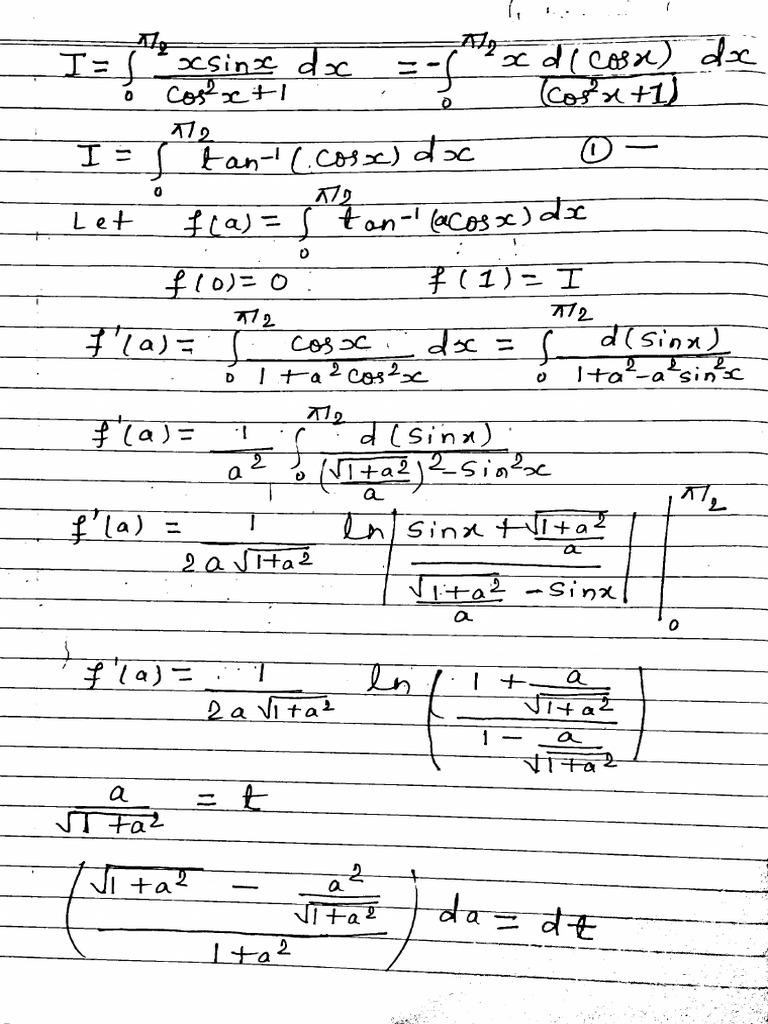 I = ∫₀^{π/2} (x sinx)/(cos²x+1) dx = -∫₀^{π/2} x d(cosx)/(cos²x+1) dx
I = ∫₀^{π/2} tan⁻¹(cosx) dx ① —
Let f(a) = ∫₀^{π/2} tan⁻¹(acosx) dx
f(0) = 0 f(1) = I
f'(a) = ∫₀^{π/2} cosx/(1+a²cos²x) dx = ∫₀^{π/2} d(sinx)/(1+a²-a²sin²x)
f'(a) = 1/a² ∫₀^{π/2} d(sinx)/((√(1+a²)/a)² - sin²x)
f'(a) = 1/(2a√(1+a²)) ln|(sinx + √(1+a²)/a)/(√(1+a²)/a - sinx)| |₀^{π/2}
f'(a) = 1/(2a√(1+a²)) ln((1 + a/√(1+a²))/(1 - a/√(1+a²)))
a/√(1+a²) = t
((√(1+a²) - a²/√(1+a²))/(1+a²)) da = dt